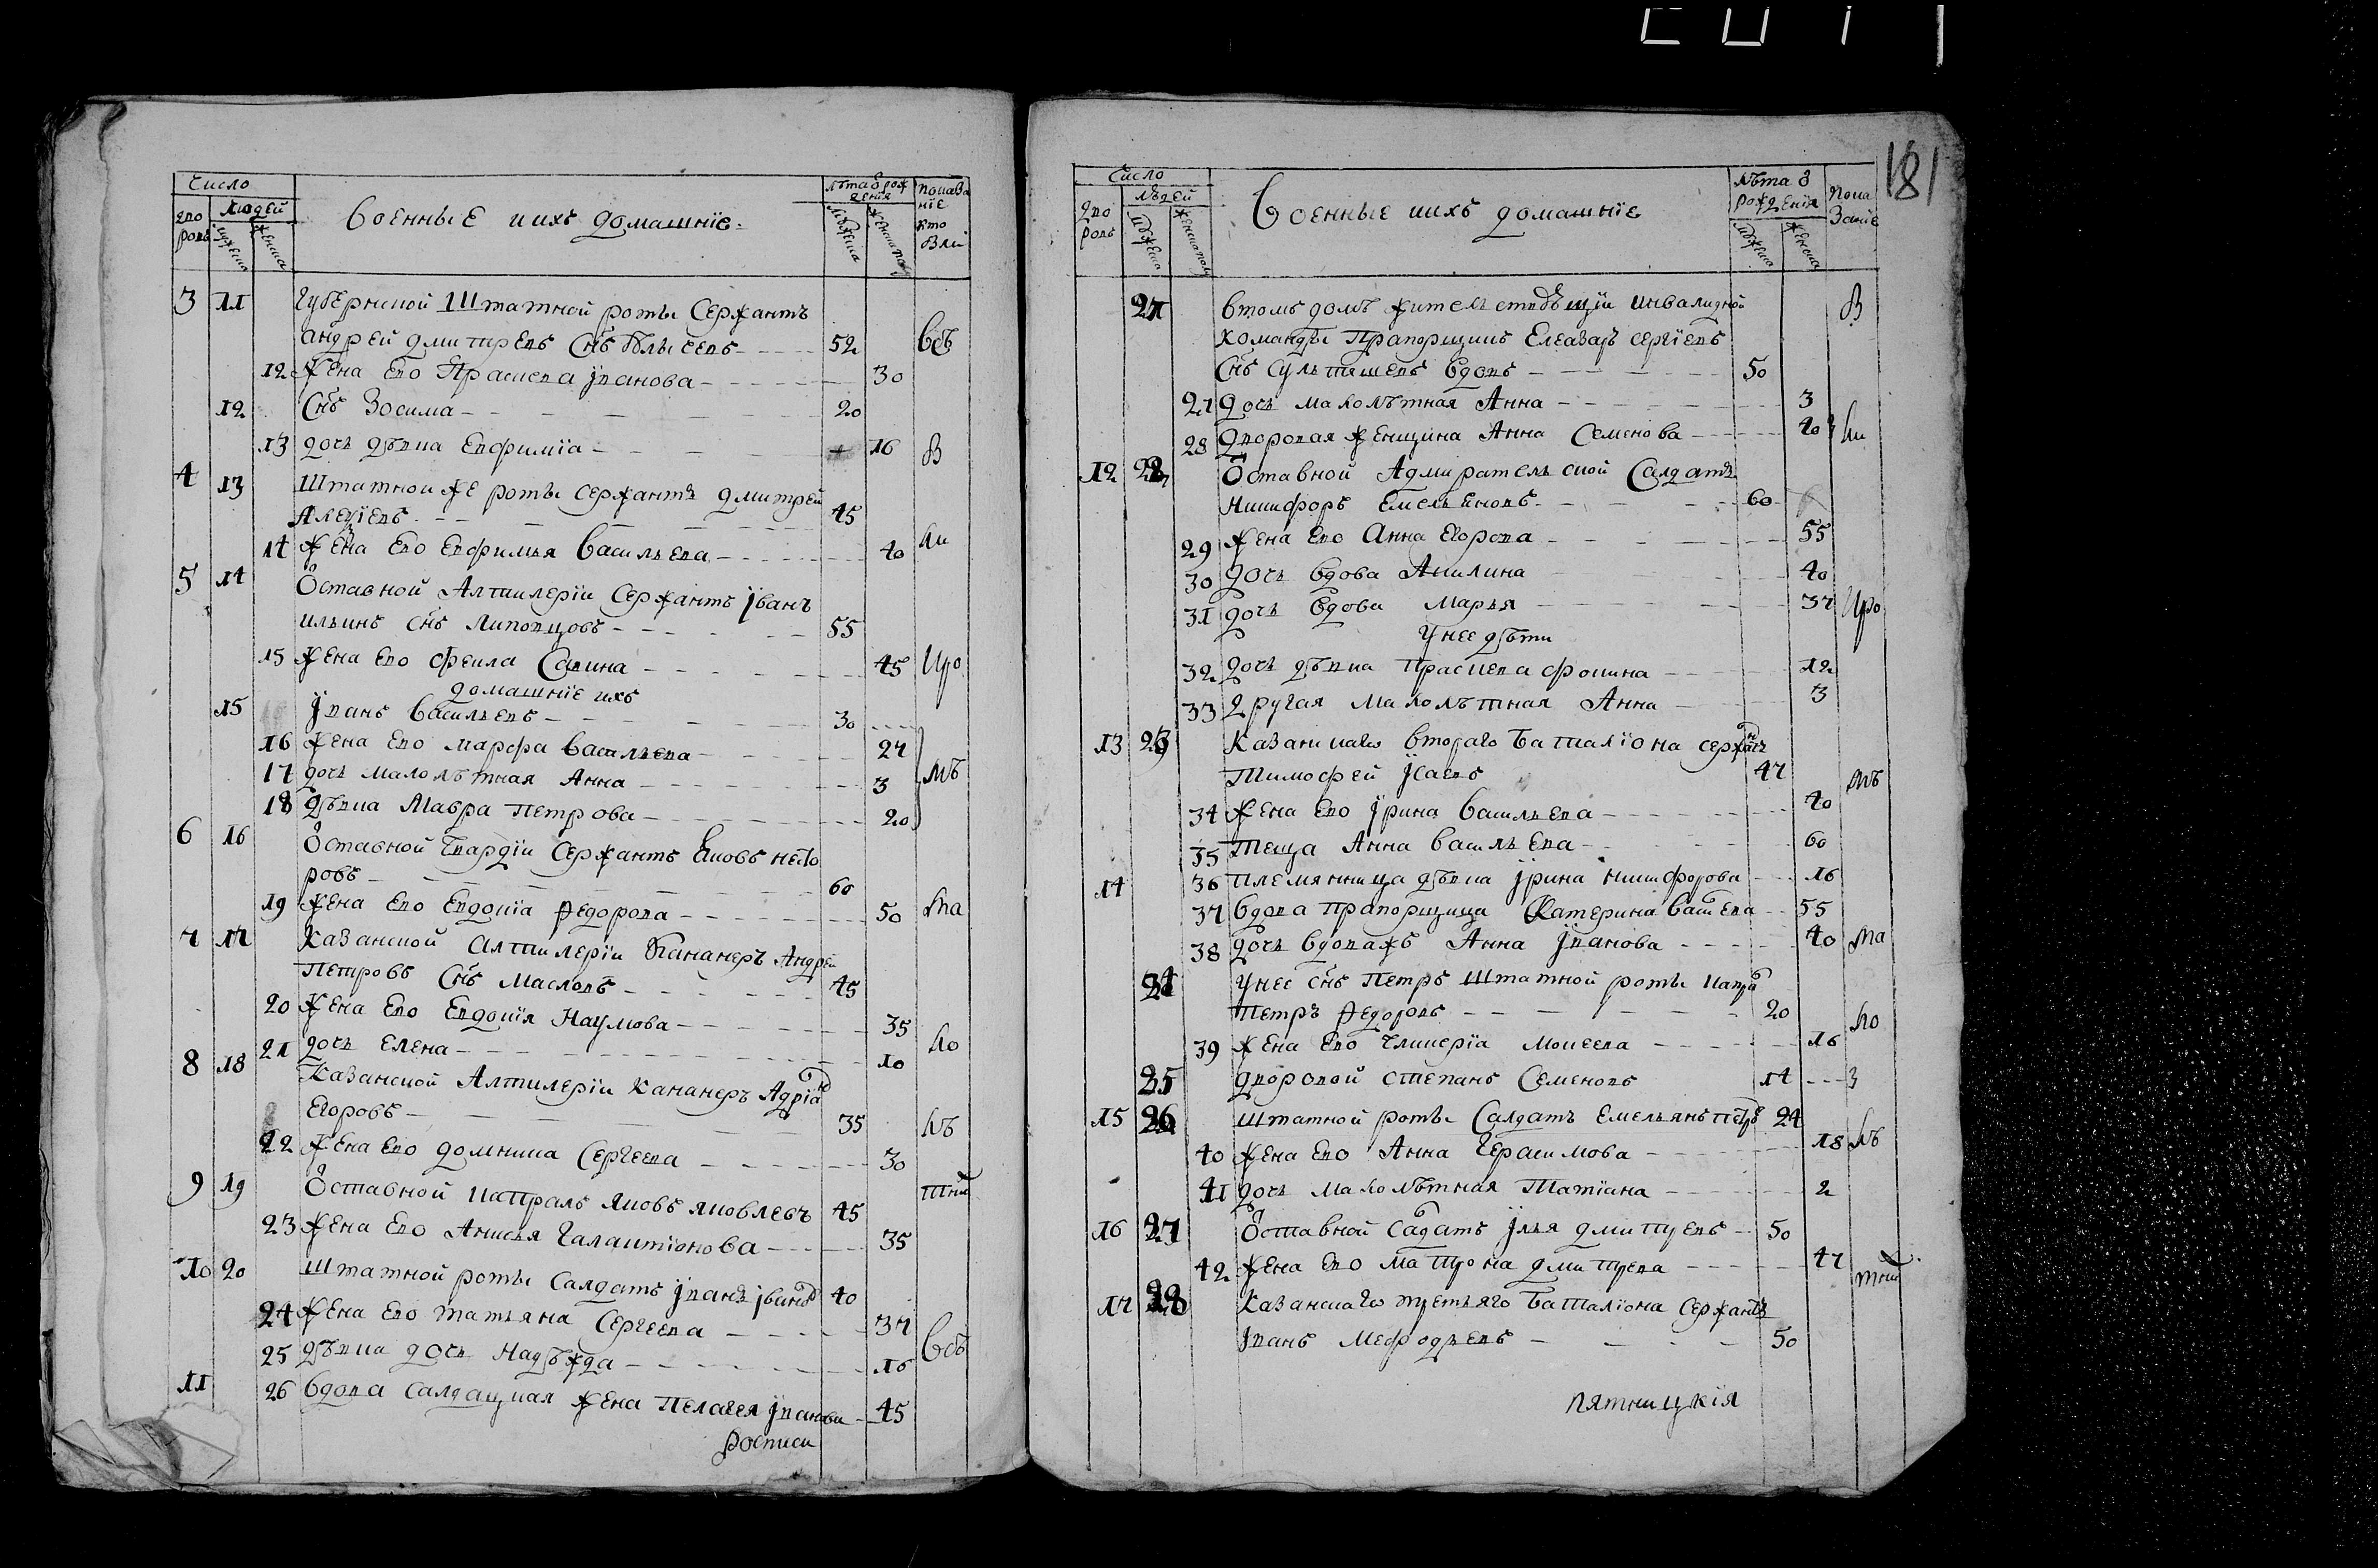 Число
людей
дво
ровъ
мужеска
женска
Военные и ихъ домашнїе.
лѣта ѿ рож
денїя
мужеска
женска
показа
нїе
кто
былі
3 11 Губернской Штатной роты Сержантъ
андрей дмитревъ Снъ 52 всѣ
12 Жена ево Прасковя Iванова 30
12 Снъ Зосима 20
13 дочь дѣвка Евфимїа 16 В
4 13 Штатной же роты сержантъ дмитрей
Алеѯіевъ 45
14 Жена ево Евфимья Васильева 40 ли
5 14 Ѿставной Алтилерїи Сержантъ Iванъ
ильинъ снъ Липовцовъ 55
15 Жена ево Фекла Савина 45 Испо
домашнїе ихъ
15 Iванъ Васильевъ 30
16 Жена ево марфа Васильева 27
17 дочь малолѣтная Анна 3
18 дѣвка Мавра Петрова 20
6 16 Ѿставной Гвардїи Сержантъ Яковъ
ровъ 60
19 Жена ево Евдокїа Ѳедорова 50 та
7 17 Казанской Алтилерїи Кананеръ Андрей
Петровъ Снъ Масловъ 45
20 Жена ево Евдокїя Наумова 35 ко
21 дочь Елена 10
8 18 Казанской Алтилерїи Кананеръ Адріа
Егоровъ 35
22 Жена ево домника Сергеева 30
9 19 Ѿставной капралъ Яковъ яковлевъ 45
23 Жена ево Анисья Галантїонова 35
10 20 Штатной роты Салдатъ Iванъ Iвановъ 40
24 Жена ево татьяна Сергеева 37
25 Дѣвка дочь Надѣжда 16 Всѣ
11 26 вдова салдацкая жена Пелагея Iванова 45
росписи
181
Число
людей
дво
ровъ
мужеска
женска полу
Военные и ихъ домашнїе
Лѣта ѿ
рожденїя
мужеска
женска
Пока
занїе
21 Втомъ домѣ жительствующїи инвалидной
команды Прапорщикъ Елеазаръ Сергїевъ В
Снъ Вдовъ 50
27 дочь малолѣтная Анна 3
28 Дворовая Женщина Анна Семенова 40
12 22 Ѿставной Адмиралтельской Салдатъ
Никифоръ Емельяновъ 60
29 Жена ево Анна Егорова 55
30 дочь вдова Акилина 40
31 дочь вдова Марья 37
У нее дѣти
32 дочь дѣвка Прасковя Фокина 12
33 другая Малолѣтная Анна 3
13 23 Казанскаго втораго Баталїона сержантъ
Тимофей Iсаевъ 47
34 Жена ево Iрина Васильева 40
35 Теща Анна Васильева 60
36 племянница дѣвка Iрина Никифорова 16
14 37 вдова прапорщица Катерина Васильева 55
38 дочь вдова жъ Анна Iванова 40 та
24 У нее снъ Петръ Штатной роты капралъ
Петръ Ѳедоровъ 20
39 Жена ево Гликерїа Моисеева 16
25 дворовой степанъ Семеновъ 14
15 26 Штатной роты Салдатъ Емельянъ Петровъ 24
40 Жена ево Анна Герасимова 18
41 дочь малолѣтная Татїана 2
16 27 Ѿставной Салдатъ Iлья дмитрѣевъ 50
42 Жена ево Матрона дмитрева 47
17 28 Казанскаго третьяго Баталїона Сержантъ
Iванъ Мефодьевъ 50
пятницкїя